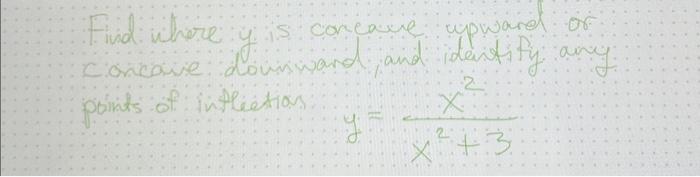 Find where y is concave upward or
concave downward, and identify any
points of inflection
y = x² / (x² + 3)